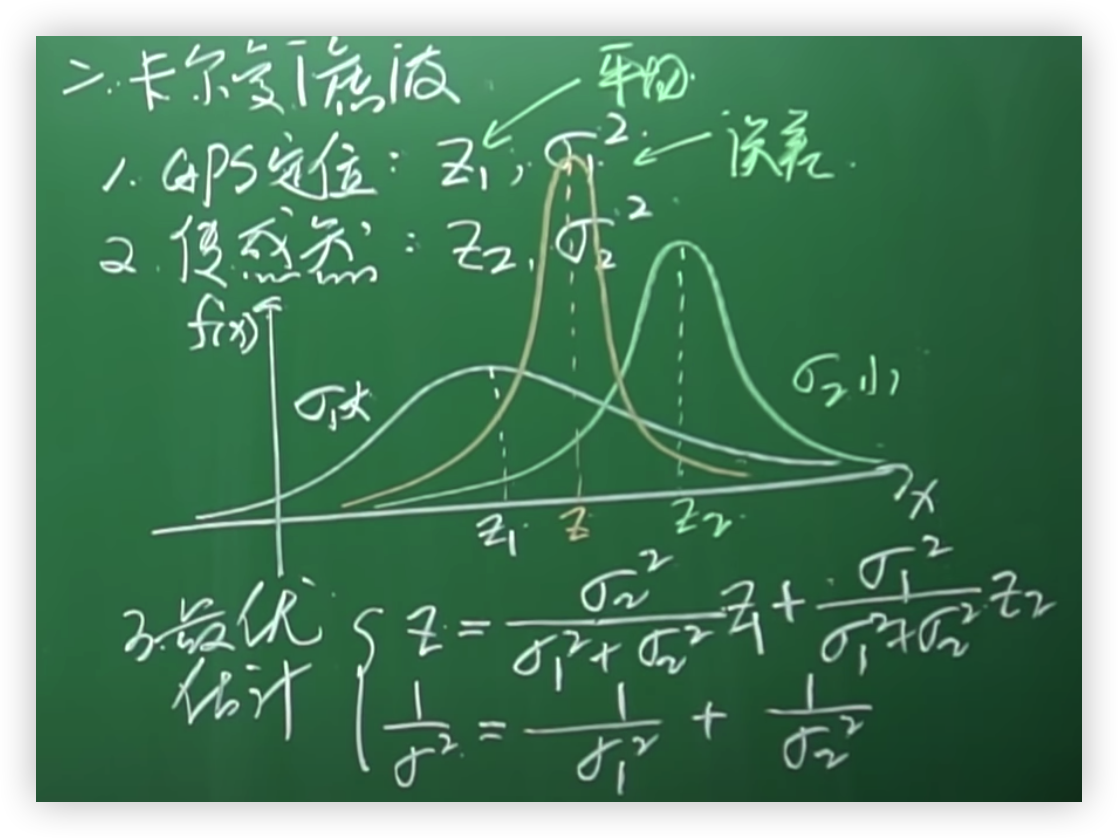 二.卡尔曼滤波
平均.
1. GPS定位: Z₁, σ₁².
误差.
2. 传感器: Z₂, σ₂².
f(x)
σ₁大
σ₂小
x
Z₁. Z Z₂.
3.最优估计 { Z = σ₂²/(σ₁²+σ₂²) Z₁ + σ₁²/(σ₁²+σ₂²) Z₂
1/σ² = 1/σ₁² + 1/σ₂²